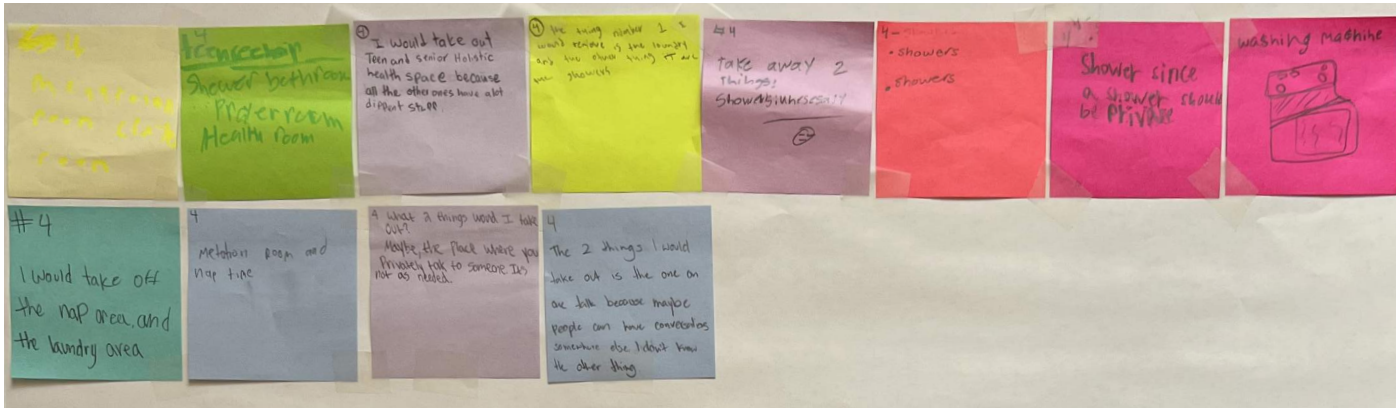 4
room
room
4
Shower bethroom
Prayer room
Health room
4
I would take out
Teen and senior Holistic
health space because
all the other ones have alot
diffrent stuff
4 the thing number 1 I
would remove is the laundry
and the other thing
the showers
#4
Take away 2
things:
Showers
4
• showers
• showers
4.
Shower since
a shower should
be private
washing mashine
#4
I would take off
the nap area, and
the laundry area
4
Metation room and
nap time
4 What 2 things would I take
out?
Maybe, the place where you
Privately talk to someone its
not as needed.
4
The 2 things I would
take out is the one on
one talk because maybe
people can have conversations
somewhere else I didn't know
the other thing